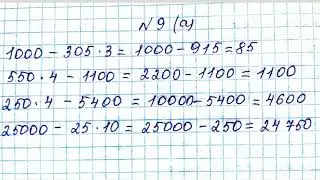 N 9 (а)
1000 - 305 · 3 = 1000 - 915 = 85
550 · 4 - 1100 = 2200 - 1100 = 1100
250 · 4 - 5400 = 10000 - 5400 = 4600
25000 - 25 · 10 = 25000 - 250 = 24750